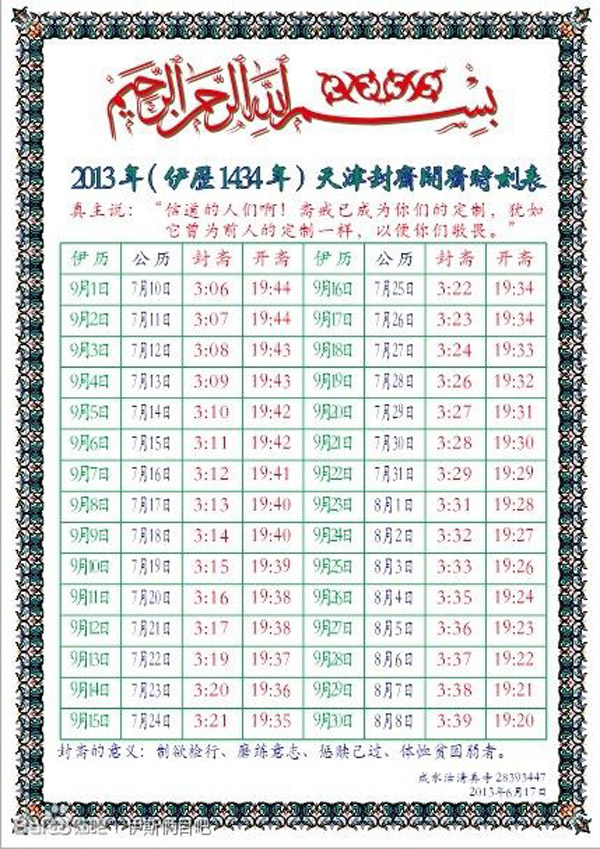 بسم الله الرحمن الرحيم
2013年(伊历1434年)天津封斋開斋時刻表
真主说:“信道的人们啊!斋戒已成为你们的定制,犹如
它曾为前人的定制一样,以便你们敬畏。”
伊历 公历 封斋 开斋 伊历 公历 封斋 开斋
9月1日 7月10日 3:06 19:44 9月16日 7月25日 3:22 19:34
9月2日 7月11日 3:07 19:44 9月17日 7月26日 3:23 19:34
9月3日 7月12日 3:08 19:43 9月18日 7月27日 3:24 19:33
9月4日 7月13日 3:09 19:43 9月19日 7月28日 3:26 19:32
9月5日 7月14日 3:10 19:42 9月20日 7月29日 3:27 19:31
9月6日 7月15日 3:11 19:42 9月21日 7月30日 3:28 19:30
9月7日 7月16日 3:12 19:41 9月22日 7月31日 3:29 19:29
9月8日 7月17日 3:13 19:40 9月23日 8月1日 3:31 19:28
9月9日 7月18日 3:14 19:40 9月24日 8月2日 3:32 19:27
9月10日 7月19日 3:15 19:39 9月25日 8月3日 3:33 19:26
9月11日 7月20日 3:16 19:38 9月26日 8月4日 3:35 19:24
9月12日 7月21日 3:17 19:38 9月27日 8月5日 3:36 19:23
9月13日 7月22日 3:19 19:37 9月28日 8月6日 3:37 19:22
9月14日 7月23日 3:20 19:36 9月29日 8月7日 3:38 19:21
9月15日 7月24日 3:21 19:35 9月30日 8月8日 3:39 19:20
封斋的意义:制欲检行、磨练意志、惩赎己过、体恤贫困弱者。
咸水沽清真寺 28393447
2013年6月17日
Baidu贴吧|伊斯俩目吧